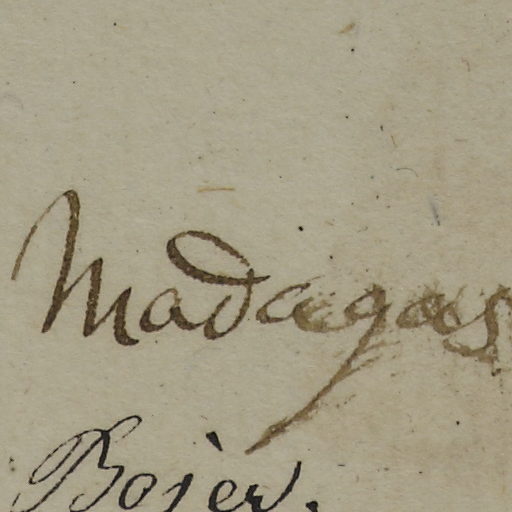 Madagas
Bojer.